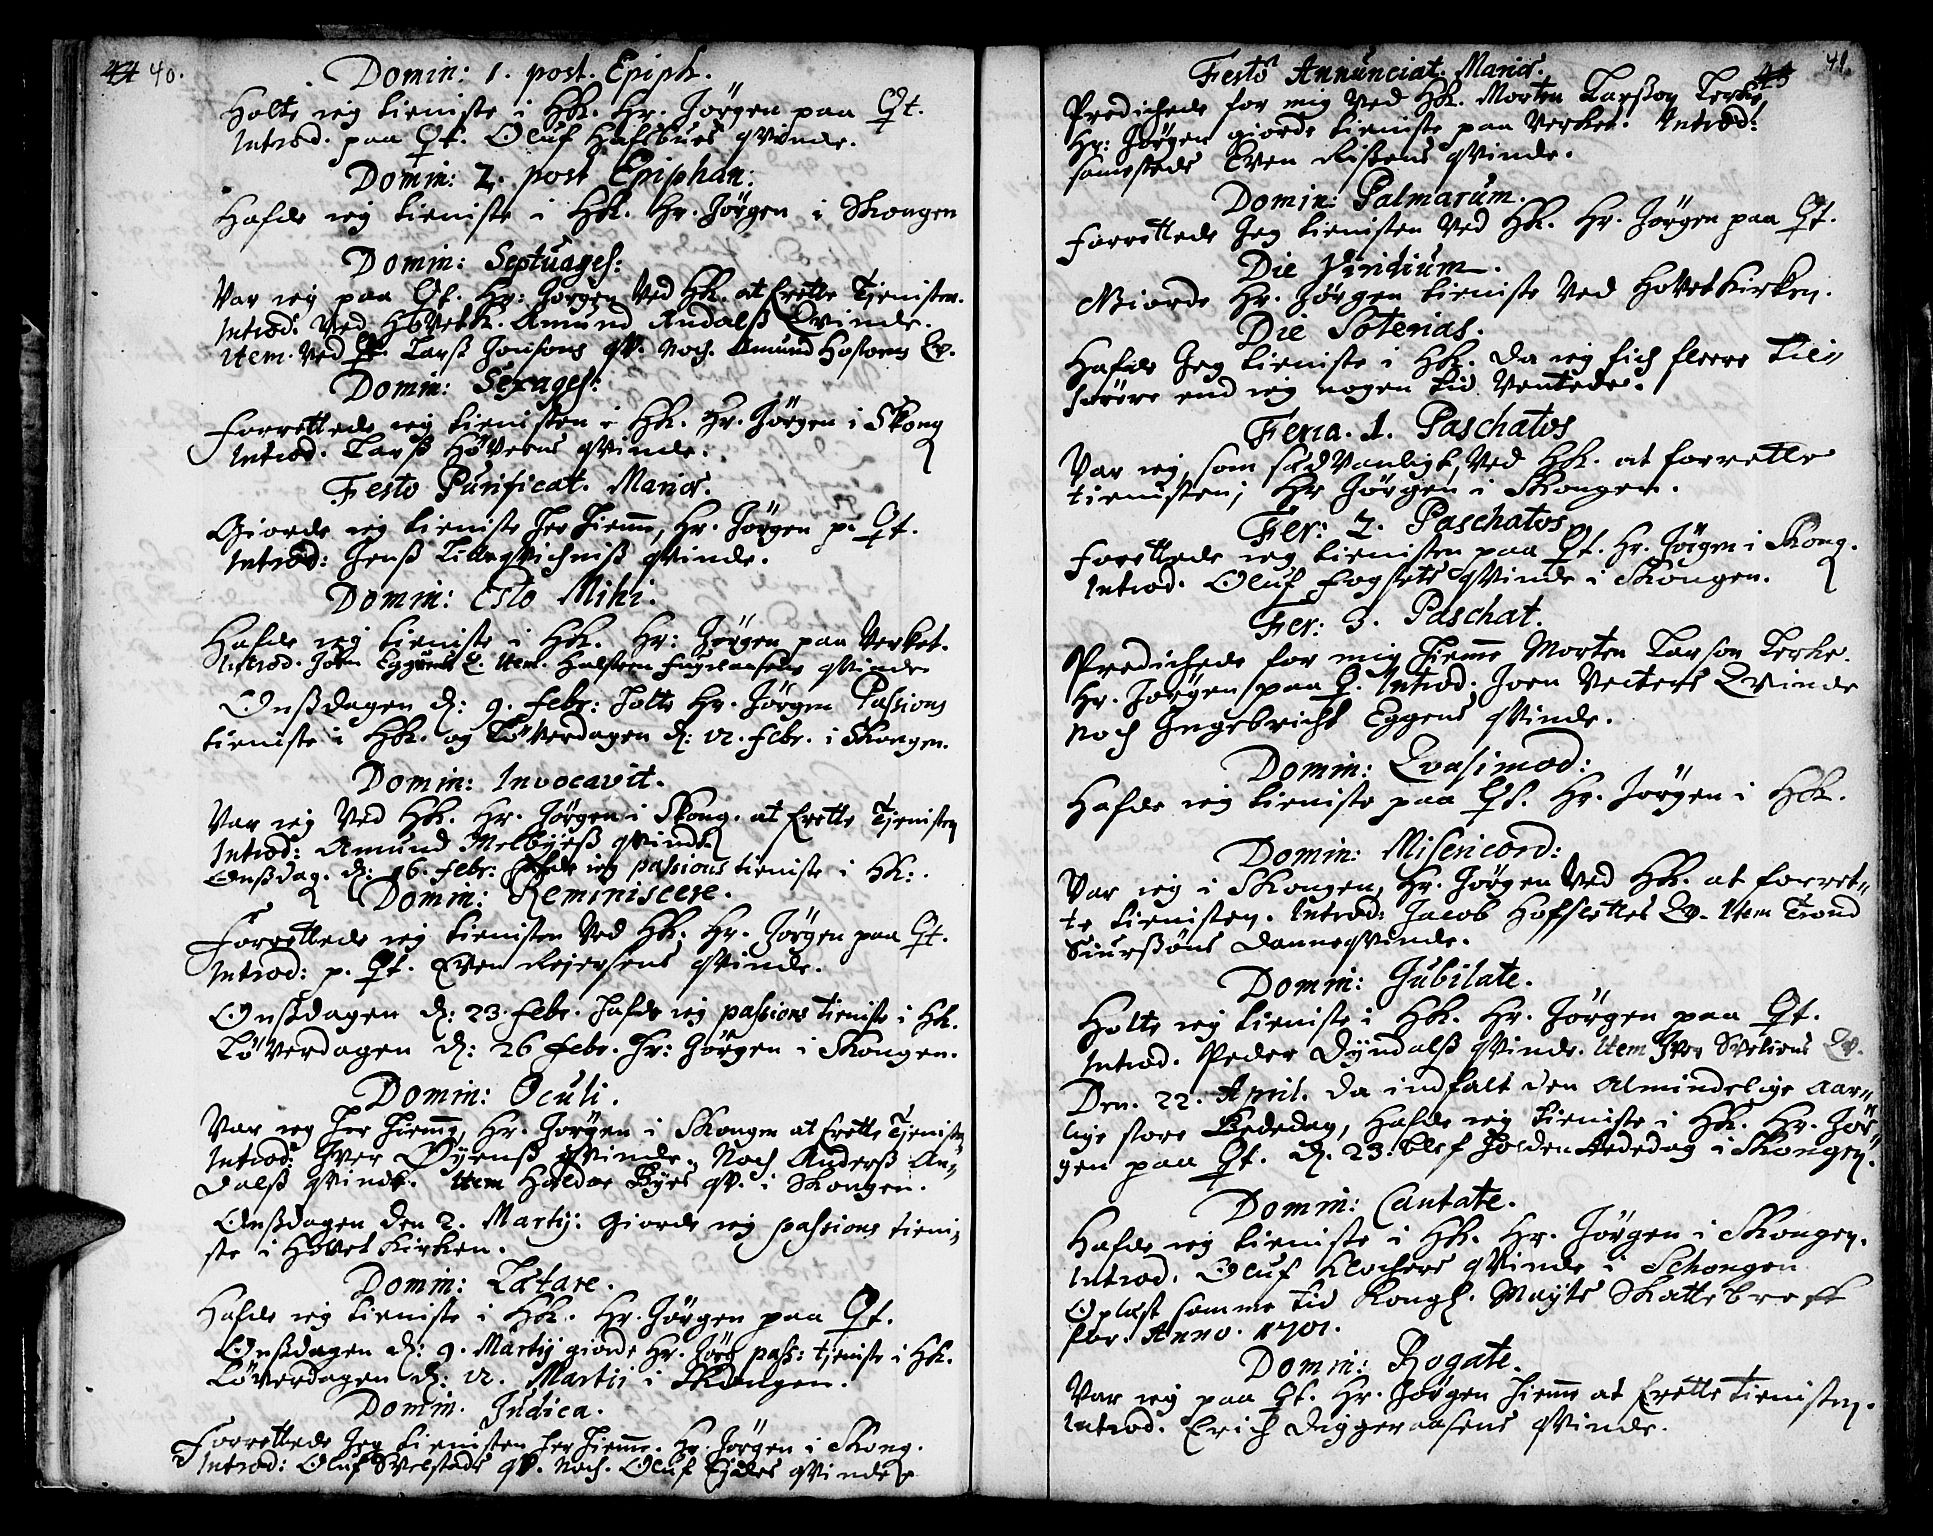 40.
Domin: 1. post. Epiph.
Holte ieg tieniste i HK. Hr. Jörgen paa Qt.
Introd. paa Qt. Oluf Hafsbues qvinde.
Domin: 2. post Epiphan:
Hafde ieg tieniste i HK. Hr. Jörgen i Skougen
Domin: Septuages:
Var ieg paa Qt. Hr: Jörgen ved HK. at Erette Tjenisten.
Introd: ved HovetK. Amund Audalß Qvinde.
item. ved Qt. Larß Jonsöns qv. noch. Amund Hoftoens Qv.
Domin: Sexages:
Forrettede ieg tienisten i HK. Hr. Jörgen i Skoug
Introd. Larß Höveens qvinde.
Festo Purificat. Mariæ.
Giorde ieg tieniste her hiemme, Hr. Jörgen p. Qt.
Introd: Jenß qvinde.
Domin: Esto Mihi.
Hafde ieg tieniste i HK. Hr: Jörgen paa Verket.
Introd. Joen Eggens Q. Item. Halsteen qvinde
Onßdagen d: 9. Febr: holte Hr. Jörgen Passions
tieniste i HK. og Löverdagen d: 12. Febr. i Skougen.
Domin: Invocavit.
Var ieg ved HK. Hr. Jörgen i Skoug. at Erette Tjenisten
Introd: Amund Melbyeß qvinde
Onßdag. d: 16. Febr: hafde ieg passions tieniste i HK:.
Domin: Reminiscere.
Forrettede ieg tienisten ved HK. Hr. Jörgen paa Qt.
Introd: p. Qt. Even Rejersens qvinde.
Onßdagen d: 23. Febr. hafde ieg passions tieniste i HK.
Löverdagen d: 26 Febr. Hr: Jörgen i Skougen.
Domin: Oculi.
Var ieg her hiemme, Hr. Jörgen i Skougen at Erette Tjenisten
Introd: Iver Öyenß qvinde. Noch Anderß An-
dalß qvinde. Item Haldoe Byes qv. i Skougen.
Onßdagen den 2. Martij: Giorde ieg passions tieni-
ste i Hovet Kirken.
Domin: Lætare.
Hafde ieg tieniste i HK. Hr. Jörgen paa Qt.
Onßdagen d: 9. Martij giorde Hr. Jörg pass: tjeniste i HK.
Löverdagen d: 12. Martii i Skougen.
Domin. Judica.
Forrettede Jeg tienisten her hiemme. Hr. Jörgen i Skoug.
Introd: Oluf Svelstads qv. noch. Oluf Eides qvinde
41.
Festo Annunciat. Mariæ.
Predichede for mig ved HK. Morten Larßön Lerke,
Hr: Jörgen giorde tieniste paa Verket. Introd:
samesteds Even Ristens qvinde.
Domin: Palmarum.
Forrettede Jeg tienisten ved HK. Hr. Jörgen paa Qt.
Die Viridium.
Giorde Hr. Jörgen tieniste ved HovetKirken.
Die Soterias.
Hafde Jeg tieniste i HK. da ieg fich fleere Til-
hörere end ieg nogen tid ventede.
Feria. 1. Paschatos
Var ieg, som sædvanligt, ved HK. at forrette
tienisten; Hr Jörgen i Skougen.
Fer: 2. Paschatos
Forettede ieg tienisten paa Qt. Hr. Jörgen i Skoug.
Introd. Oluf Fogstets qvinde i Skougen.
Fer: 3. Paschat.
Predichede for mig hiemme Morten Larsön Lerke.
Hr. Jörgen paa Q. Introd: Joen Vecters Qvinde
noch Ingebricht Eggens qvinde.
Domin: Qvasimod:
Hafde ieg tieniste paa Qt. Hr. Jörgen i HK.
Domin: Misericord:
Var ieg i Skougen, Hr. Jörgen ved HK. at forret-
te tienisten. Introd: Jacob Hofslettes Qv. Item Trond
Siurßöns danneqvinde.
Domin: Jubilate.
Holte ieg tieniste i HK. Hr. Jörgen paa Qt.
Introd. Peder Dyndalß qvinde. Item Iver Svetiens Qv.
Den. 22. April. da indfalt den Almindelige Aar-
lige store Bededag, hafde ieg tieniste i HK. Hr. Jör-
gen paa Qt. d. 23. blef holden Bededag i Skougen.
Domin: Cantate.
Hafde ieg tieniste i HK. Hr. Jörgen i Skougen.
Introd. Oluf Klochers qvinde i Schougen
Oplæst samme tid Kongl. Mayts Skattebreff
for Anno. 1701.
Domin: Rogate.
Var ieg paa Qt. Hr. Jörgen hiemme at Erette tienisten.
Introd. Erich Diggeraasens qvinde.